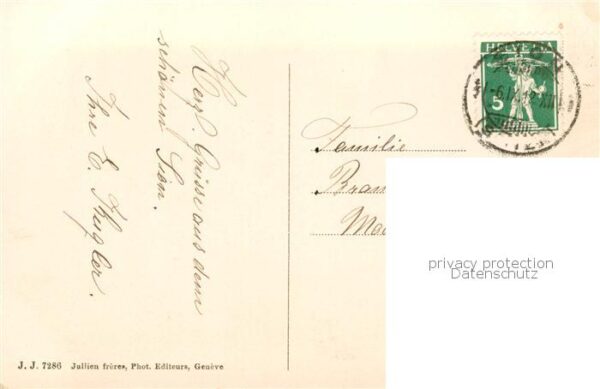 Herzl. Grüsse aus dem
schönen Sion.
Ihre E.
Familie
HELVETIA
5
privacy protection
Datenschutz
J. J. 7286 Jullien frères, Phot. Editeurs, Genève